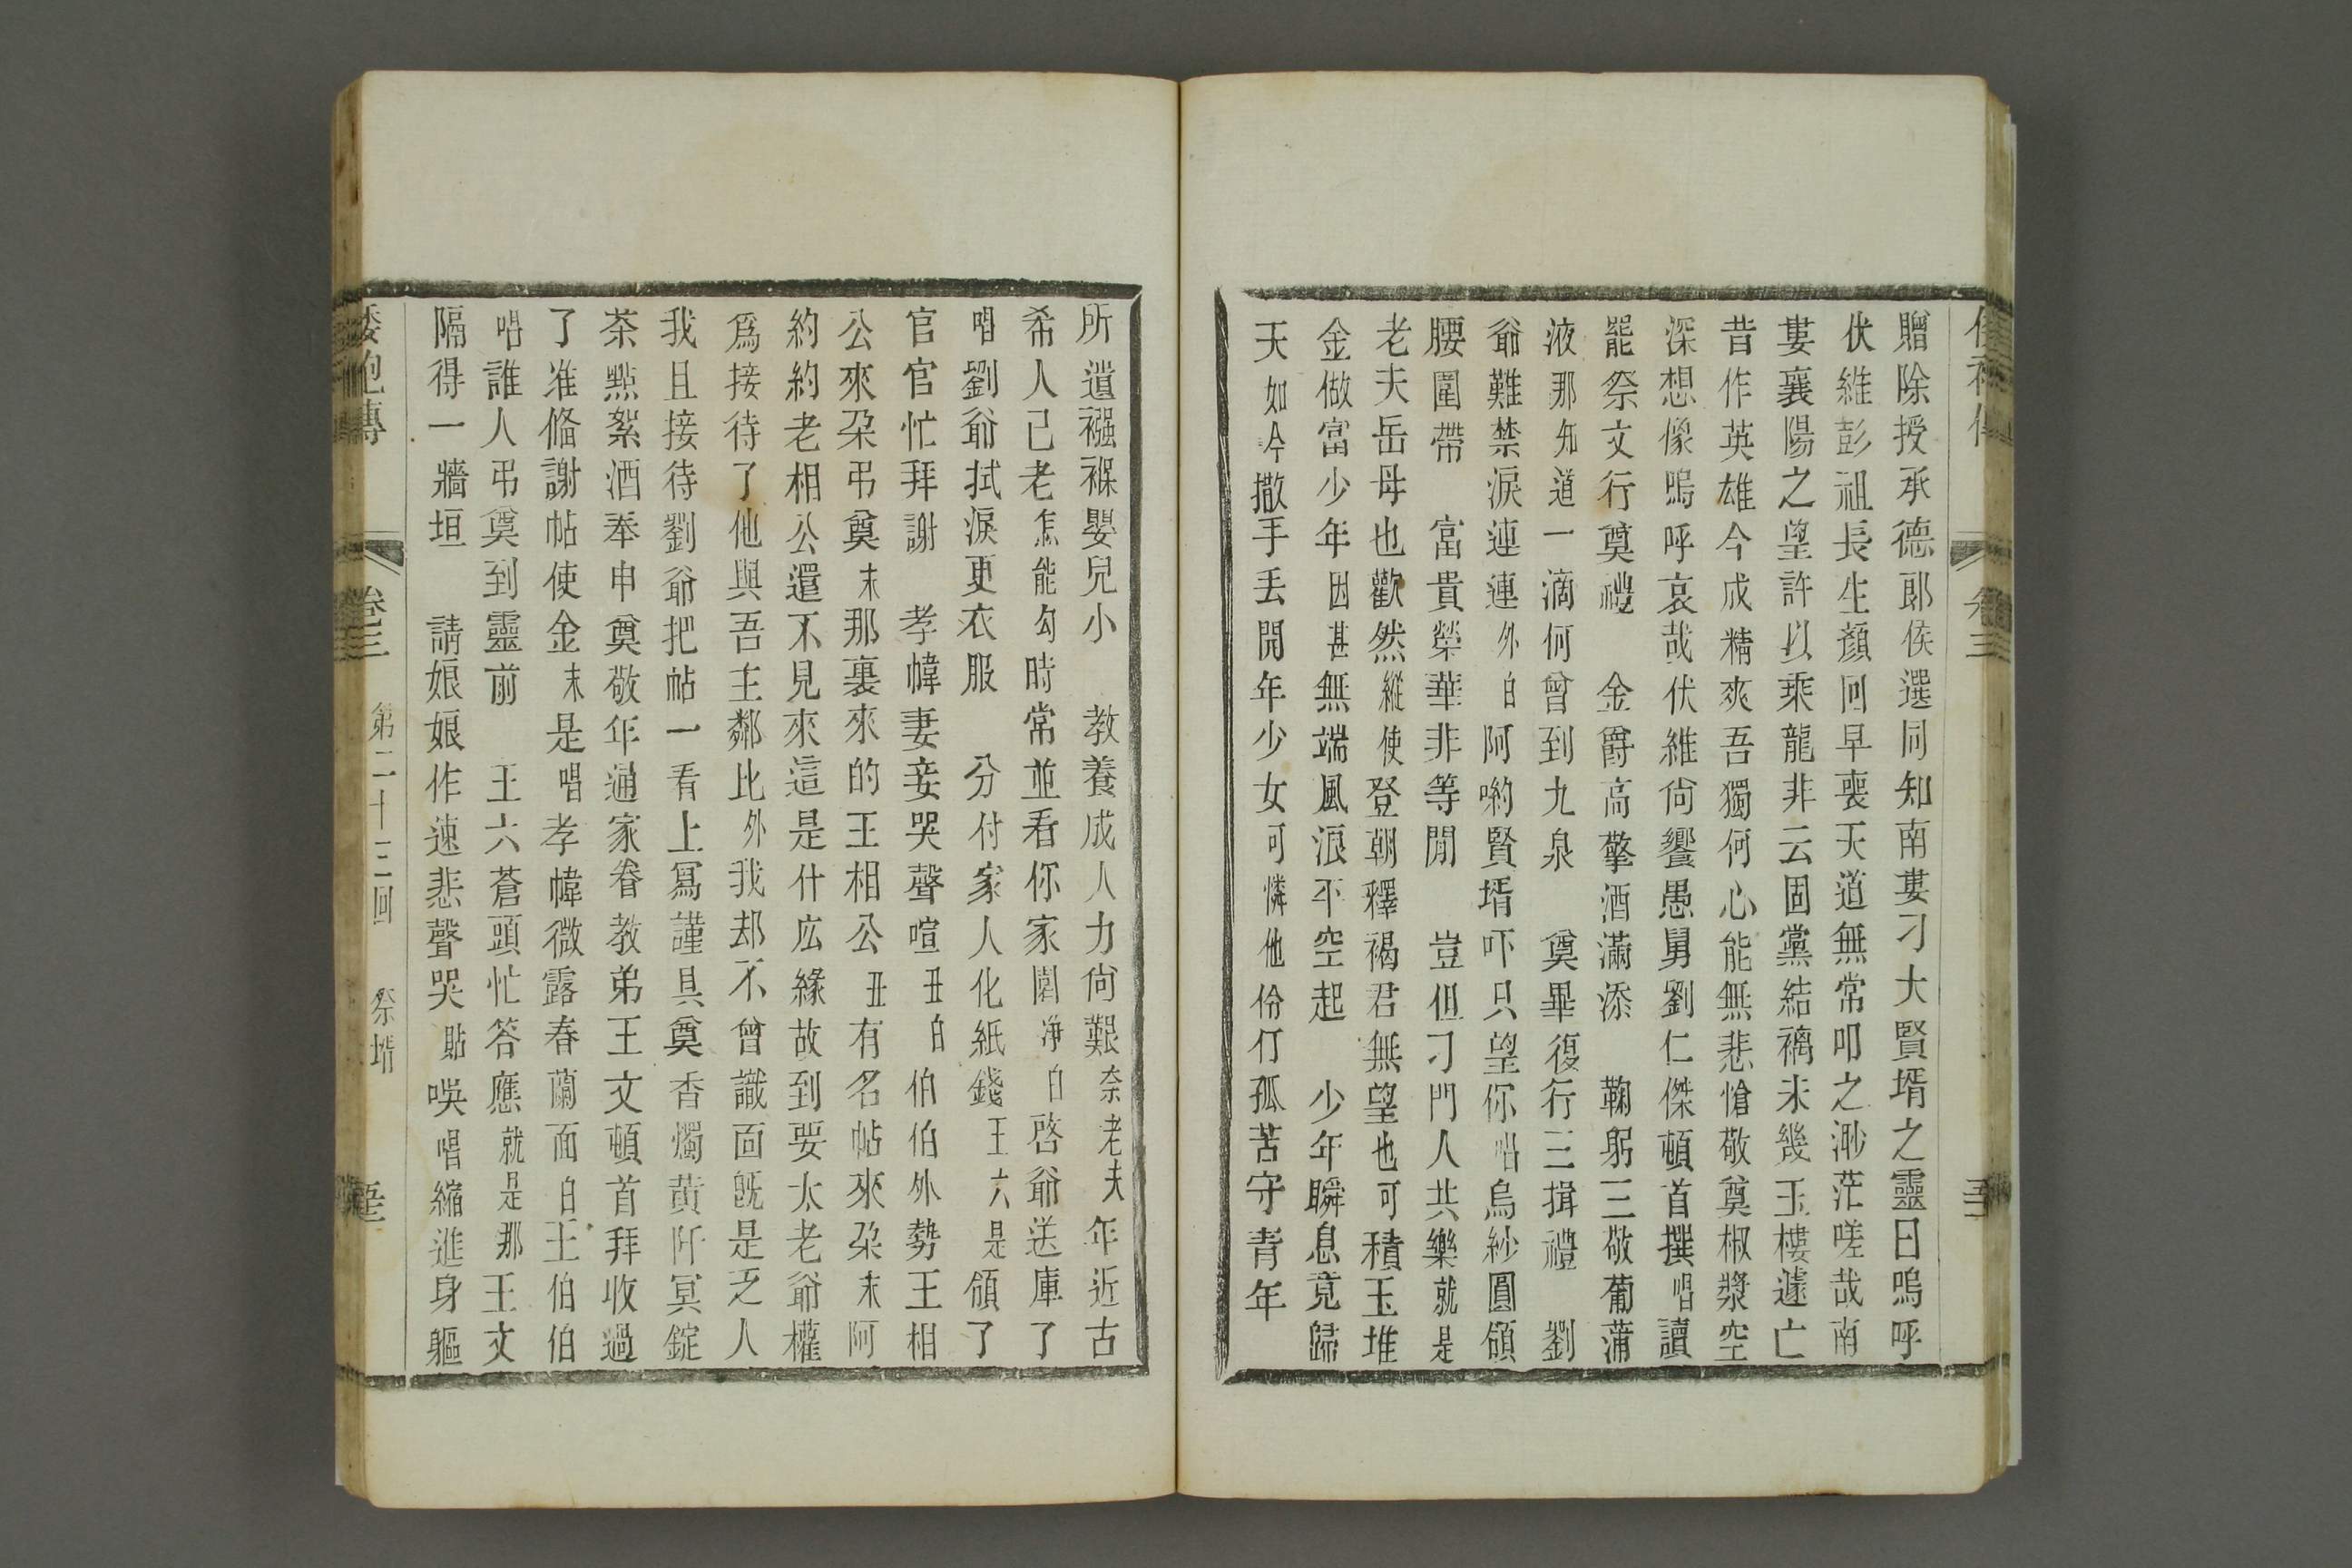 贈除授承德郎候選同知南婁刁大賢壻之靈曰嗚呼
伏維彭祖長生顏回早喪天道無常叩之渺茫嗟哉南
婁襄陽之望許以乘龍非云固黨結褵未幾玉樓遽亡
昔作英雄今成精爽吾獨何心能無悲愴敬奠椒漿空
深想像嗚呼哀哉伏維尙饗愚舅劉仁傑頓首撰唱讀
罷祭文行奠禮 金爵高擎酒滿添 鞠躬三敬葡蒲
液那知道一滴何曾到九泉 奠畢復行三揖禮 劉
爺難禁淚連連外白阿喲賢壻吓只望你唱烏紗圓領
腰圍帶 富貴榮華非等閒 豈但刁門人共樂就是
老夫岳母也歡然縱使登朝釋褐君無望也可積玉堆
金做富少年因甚無端風浪平空起 少年瞬息竟歸
天如今撒手丢開年少女可憐他伶仃孤苦守青年
卷三
所遺襁褓嬰兒小 教養成人力尙艱奈老夫年近古
希人已老怎能勾時常並看你家園淨白啓爺送庫了
唱劉爺拭淚更衣服 分付家人化紙錢王六是領了
官官忙拜謝 孝幃妻妾哭聲喧丑白伯伯外勢王相
公來朶弔奠末那裏來的王相公丑有名帖來朶末阿
約約老相公還不見來這是什広緣故到要太老爺權
爲接待了他與吾主鄰比外我却不曾識面旣是乏人
我且接待劉爺把帖一看上寫謹具奠香燭黃阡冥錠
茶點絮酒奉申奠敬年通家眷教弟王文頓首拜收過
了准俻謝帖使金末是唱孝幃微露春蘭面白王伯伯
唱誰人弔奠到靈前 王六蒼頭忙答應就是那王文
隔得一牆垣 請娘娘作速悲聲哭貼唉唱縮進身軀
倭袍傳 卷三 第二十三回 祭壻